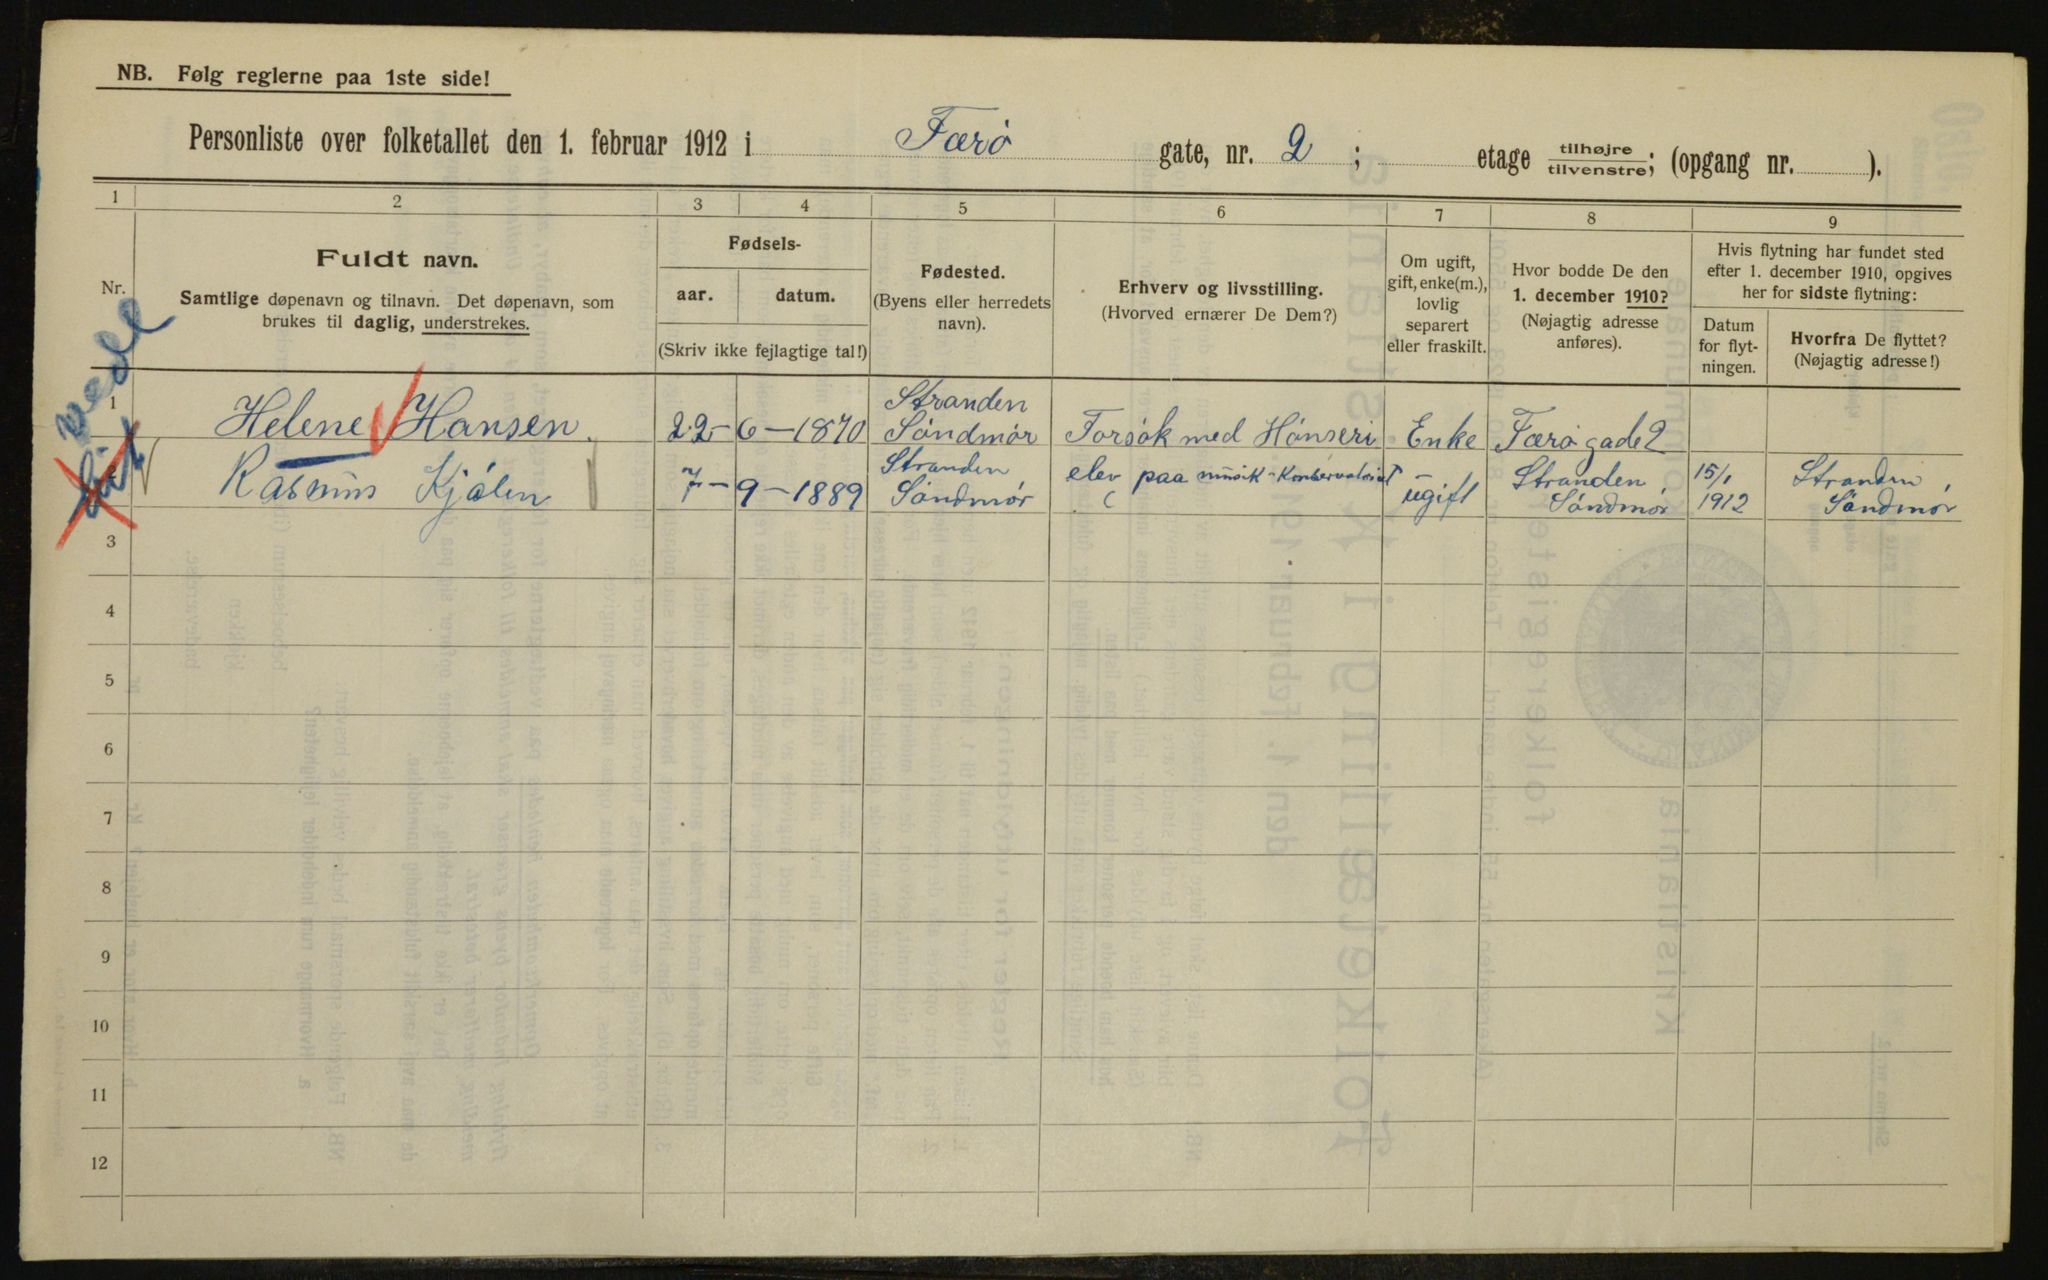 NB. Følg reglerne paa 1ste side!
Personliste over folketallet den 1. februar 1912 i Færø gate, nr. 2 ; etage tilhøjre/tilvenstre; (opgang nr. ).
1 2 3 4 5 6 7 8 9
Nr.
Fuldt navn.
Samtlige døpenavn og tilnavn. Det døpenavn, som
brukes til daglig, understrekes.
Fødsels-
aar. datum.
(Skriv ikke fejlagtige tal!)
Fødested.
(Byens eller herredets
navn).
Erhverv og livsstilling.
(Hvorved ernærer De Dem?)
Om ugift,
gift, enke(m.),
lovlig
separert
eller fraskilt.
Hvor bodde De den
1. december 1910?
(Nøjagtig adresse
anføres).
Hvis flytning har fundet sted
efter 1. december 1910, opgives
her for sidste flytning:
Datum
for flyt-
ningen.
Hvorfra De flyttet?
(Nøjagtig adresse!)
1 Helene Hansen. 22 - 6 - 1870 Stranden
Söndmör Forsök med Hönseri Enke Færögade 2
2 Rasmus Kjölen 7 - 9 - 1889 Stranden
Söndmör elev paa musik-Konservatoriet ugift Stranden
Söndmör 15/1
1912 Stranden,
Söndmör
3
4
5
6
7
8
9
10
11
12